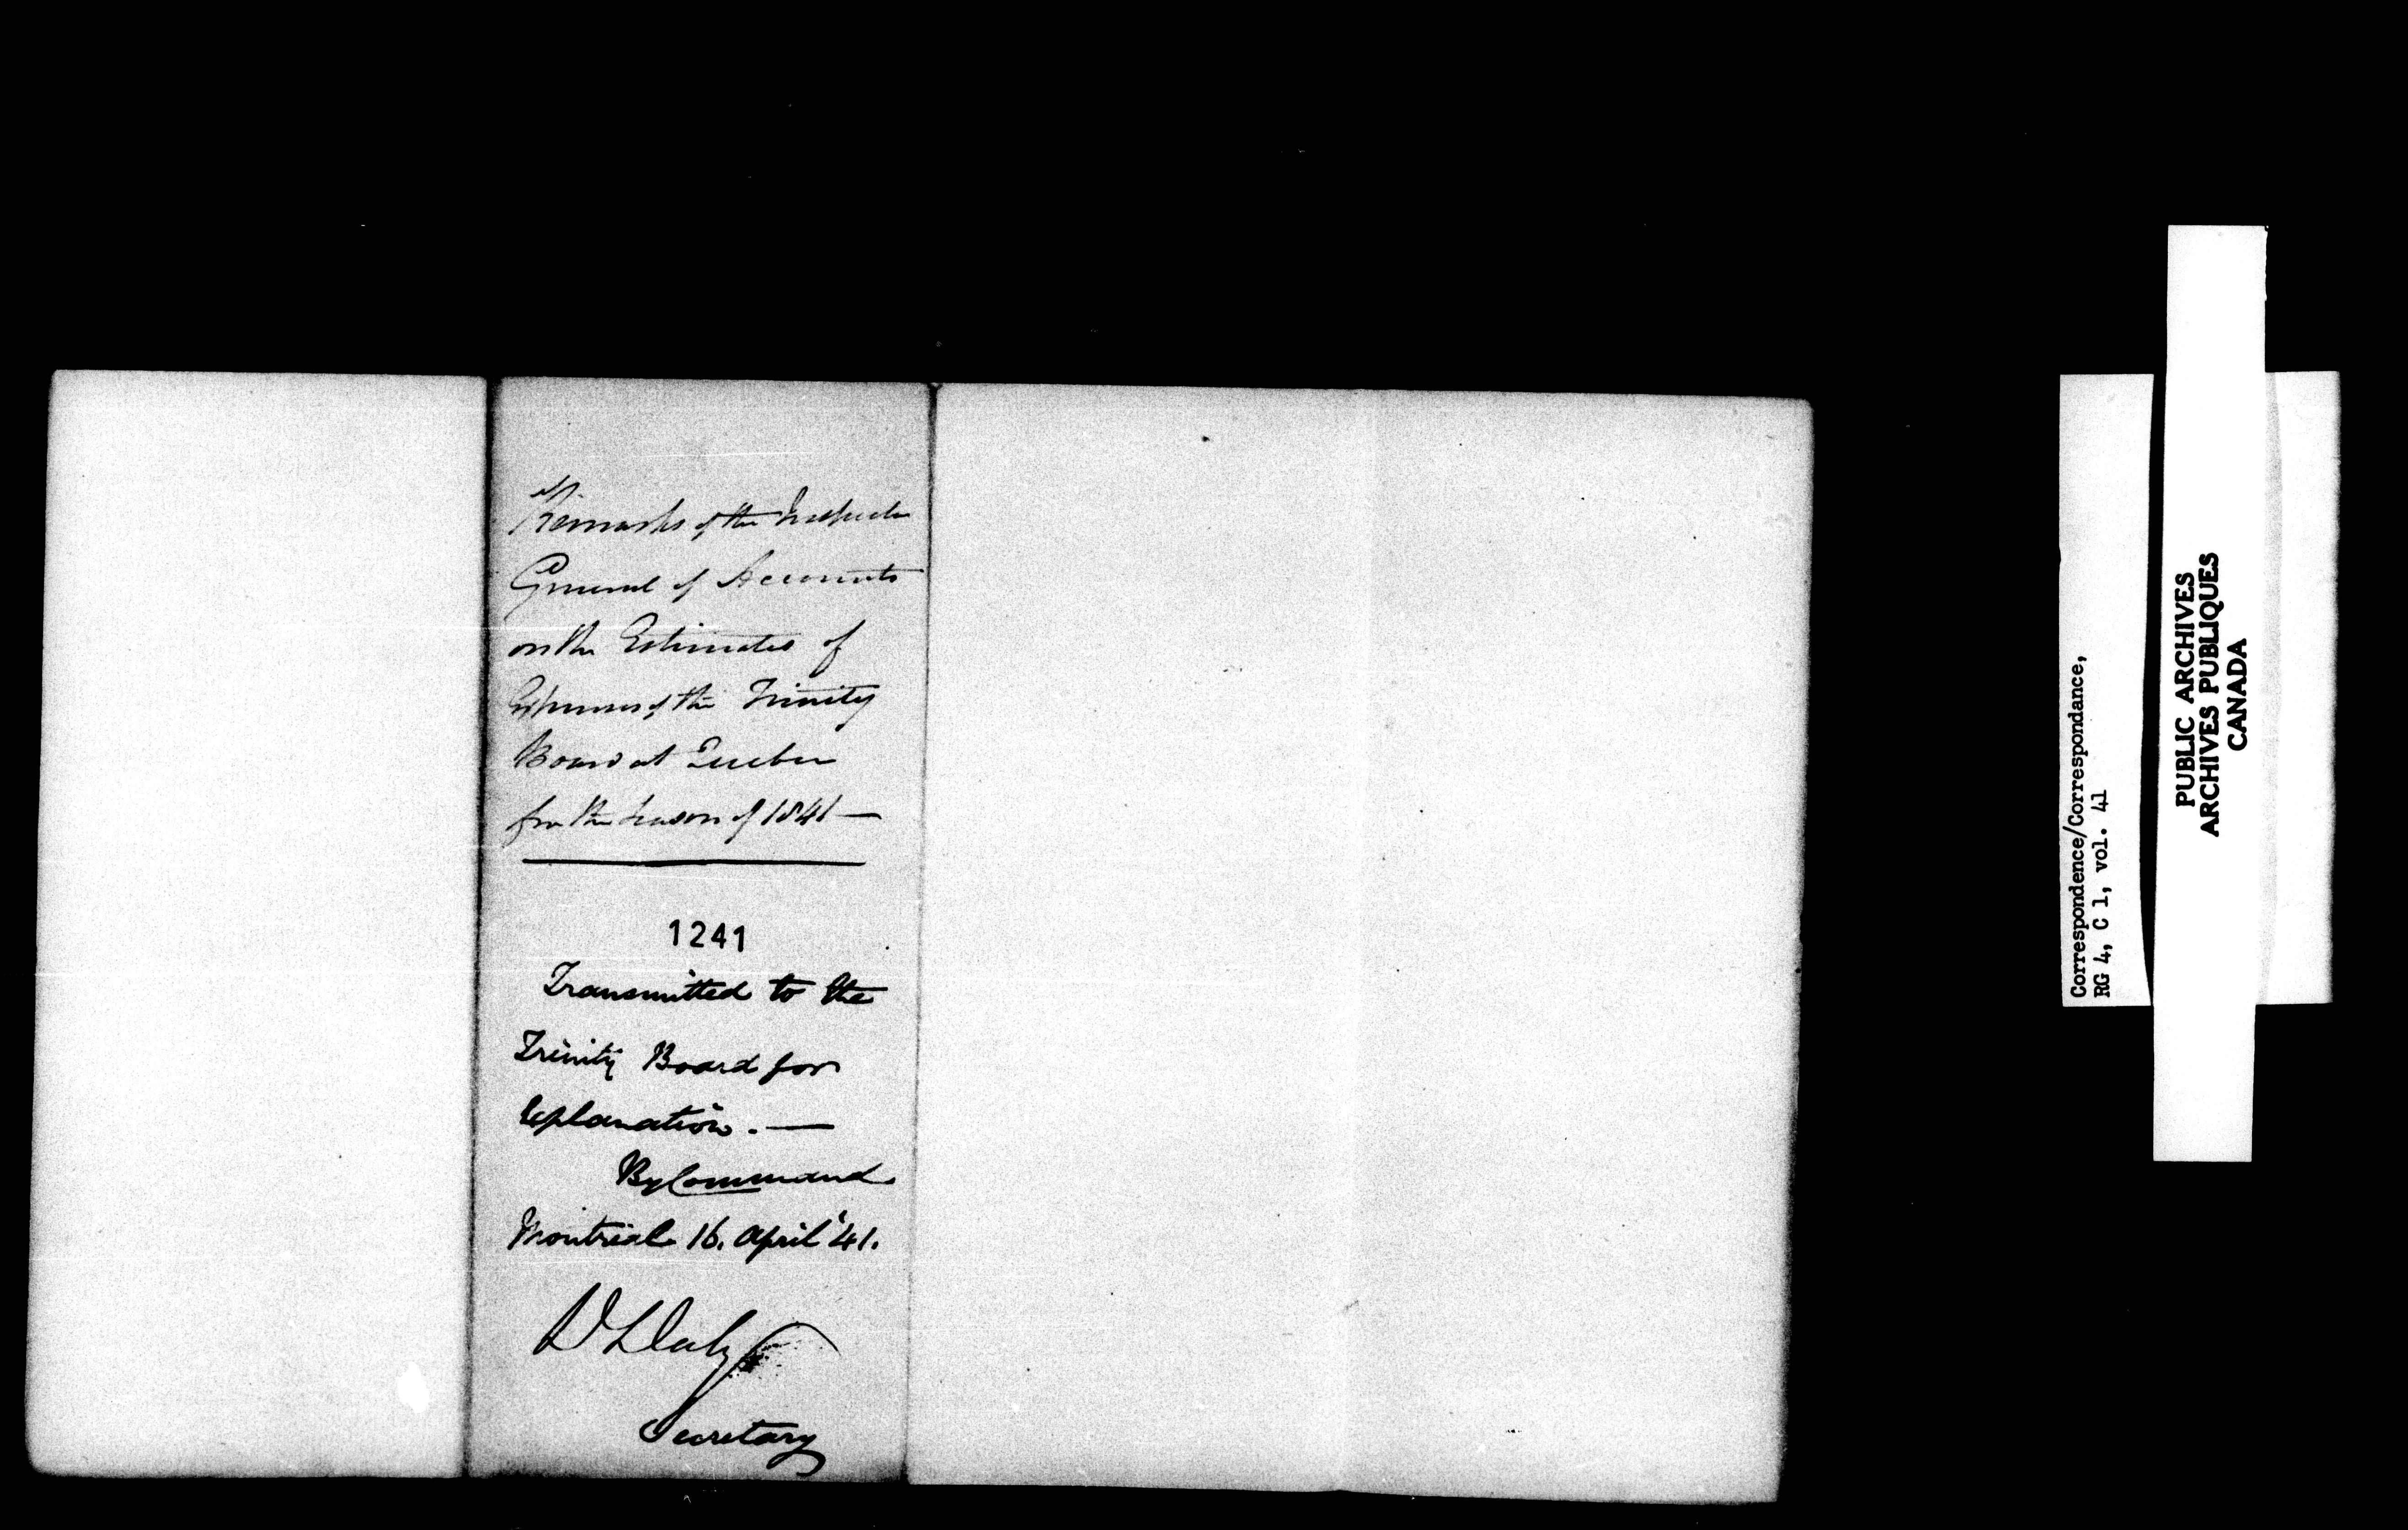 Remarks of the Inspector
General of Accounts
on the Estimates of
Expenses of the Trinity
Board at Quebec
for the Season of 1841 —
1241
Transmitted to the
Trinity Board for
Explanation. —
By Command
Montreal 16. April '41.
D Daly
Secretary
Correspondence/Correspondance,
RG 4, C 1, vol. 41
PUBLIC ARCHIVES
ARCHIVES PUBLIQUES
CANADA